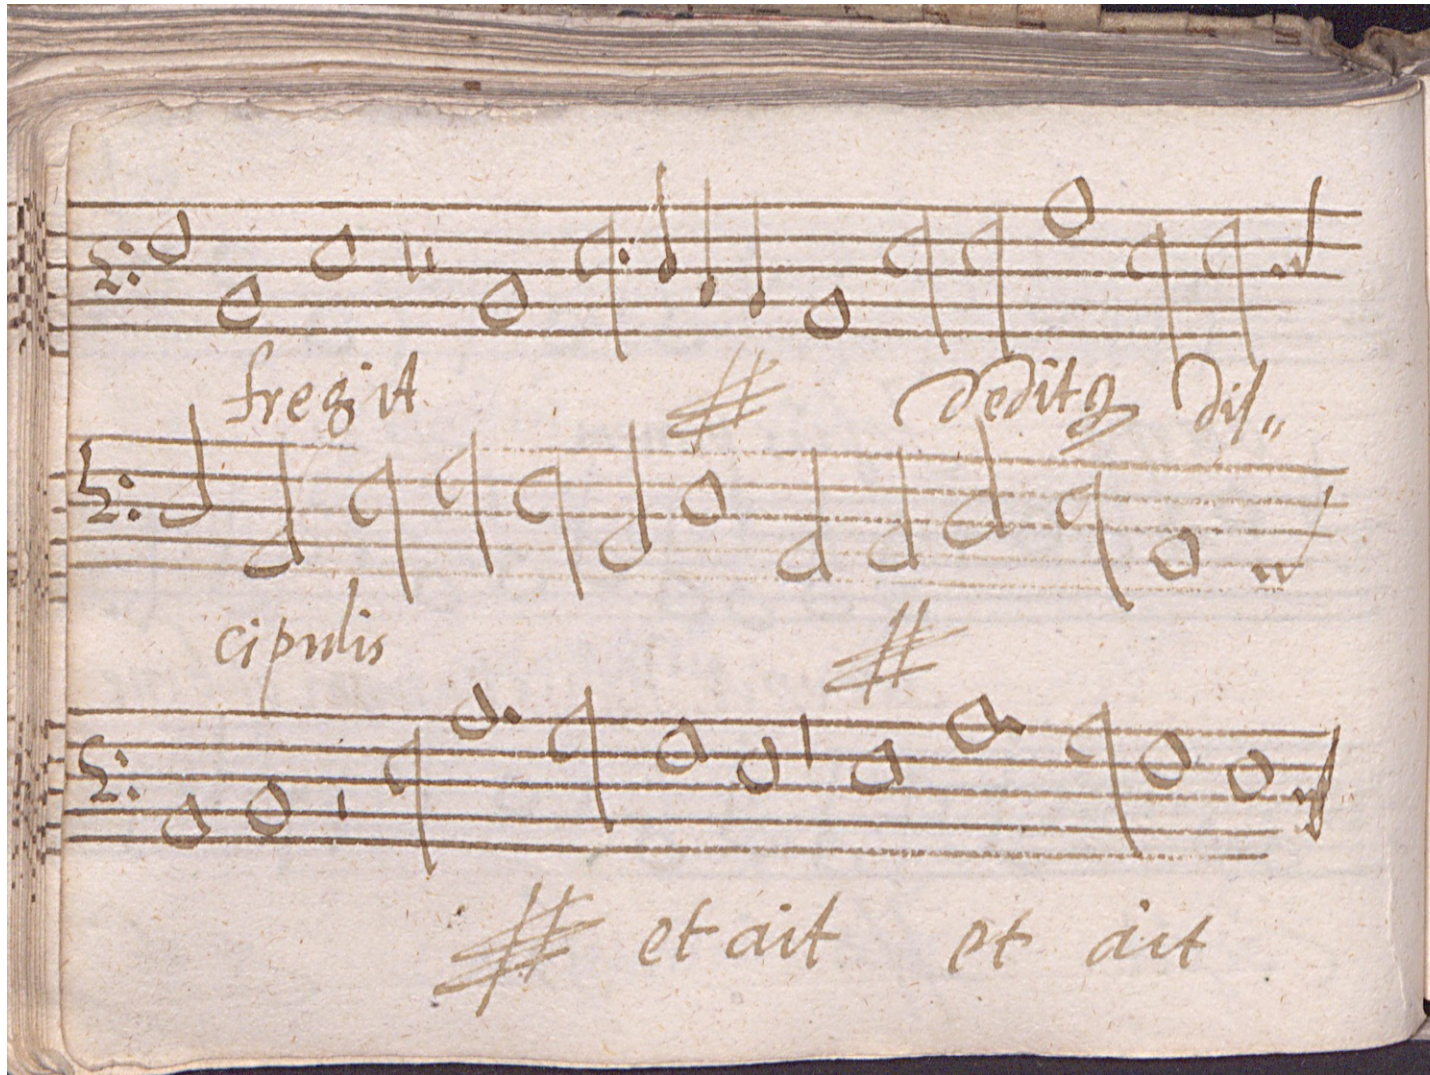 fregit # deditq dis„
cipulis #
# et ait et ait